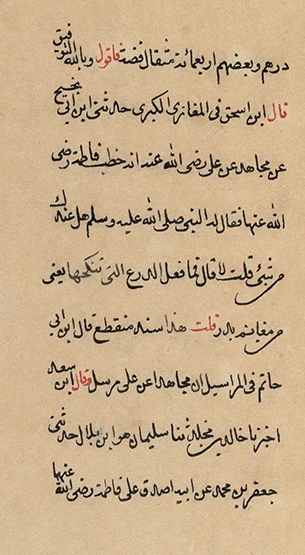 درهم وبعضهم اربعمائة مثقال فضة فاقول وبالله التوفيق
قال ابن اسحق فى المغازى الكبرى حدثنى ابن ابى نجيح
عن مجاهد عن على رضى الله عنه انه خطب فاطمة رضى
الله عنها فقال له النبى صلى الله عليه وسلم هل عندك
من شئ قلت لا قال فما فعل الدرع التى يعنى
من مغانم بدر قلت هذا سنده منقطع قال ابن ابى
حاتم فى المراسيل ان مجاهدا عن على مرسل وقال ابن سعد
اخبرنا خالد بن مخلد ثنا سليمان هو ابن بلال حدثنى
جعفر بن محمد عن ابيه اصدق على فاطمة رضى الله عنها